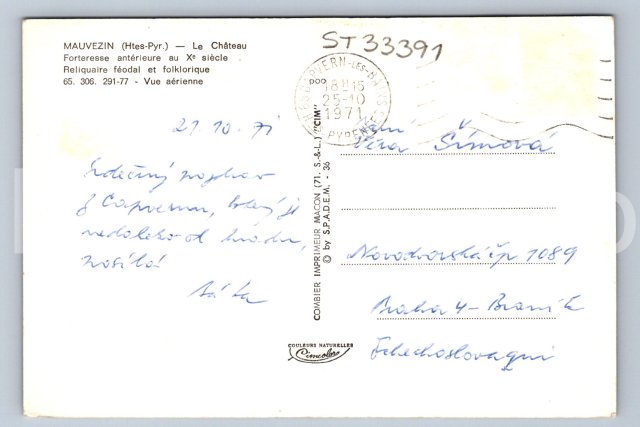 MAUVEZIN (Htes-Pyr.) — Le Château
Forteresse antérieure au Xe siècle
Reliquaire féodal et folklorique
65. 306. 291-77 - Vue aérienne
ST 33391
CAPVERN-LES-BAINS
18H15
25-10
1971
PYRENEES
21. 10. 71
Srdečný pozdrav
z Capvernu, který je
nedaleko od hradu,
posílá
COMBIER IMPRIMEUR MACON (71. S.-&-L.) "CIM"
© by S.P.A.D.E.M. - 36
COULEURS NATURELLES
Cimcolor
Paní
Věra Šímová
Novodvorská čp 1089
Praha 4 - Braník
Tchechoslovaquie